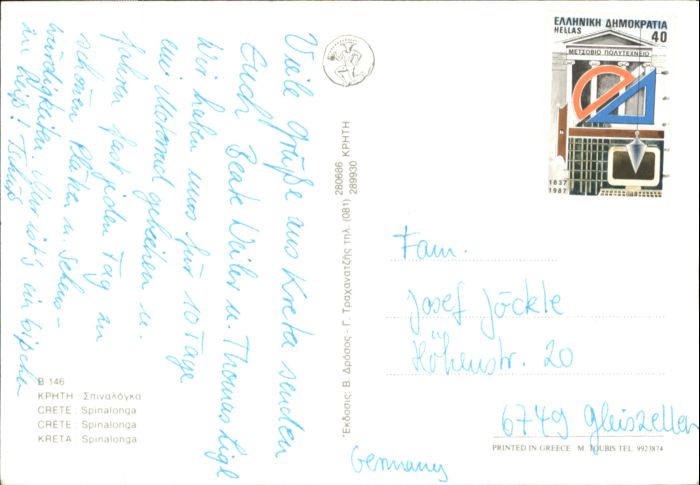 Viele Grüße aus Kreta senden
Euch Beate Weiler u. Thomas
Wir haben uns für 10 Tage
ein Motorrad geliehen u.
fahren fast jeden Tag zu
schönen Plätzen u. Sehens-
würdigkeiten. Nur ist's ein bißchen
zu heiß! Tschüß
B 146
ΚΡΗΤΗ : Σπιναλόγκα
CRETE : Spinalonga
CRETE : Spinalonga
KRETA : Spinalonga
"Εκδοσις: Β. Δρόσος - Γ. Τραχανατζής τηλ. (081) 280686 ΚΡΗΤΗ
289930
ΕΛΛΗΝΙΚΗ ΔΗΜΟΚΡΑΤΙΑ
HELLAS 40
ΜΕΤΣΟΒΙΟ ΠΟΛΥΤΕΧΝΕΙΟ
1837
1987
Fam.
Josef Jöckle
Höhenstr. 20
6749 Gleiszellen
PRINTED IN GREECE M. TOUBIS TEL. 9923874
Germany